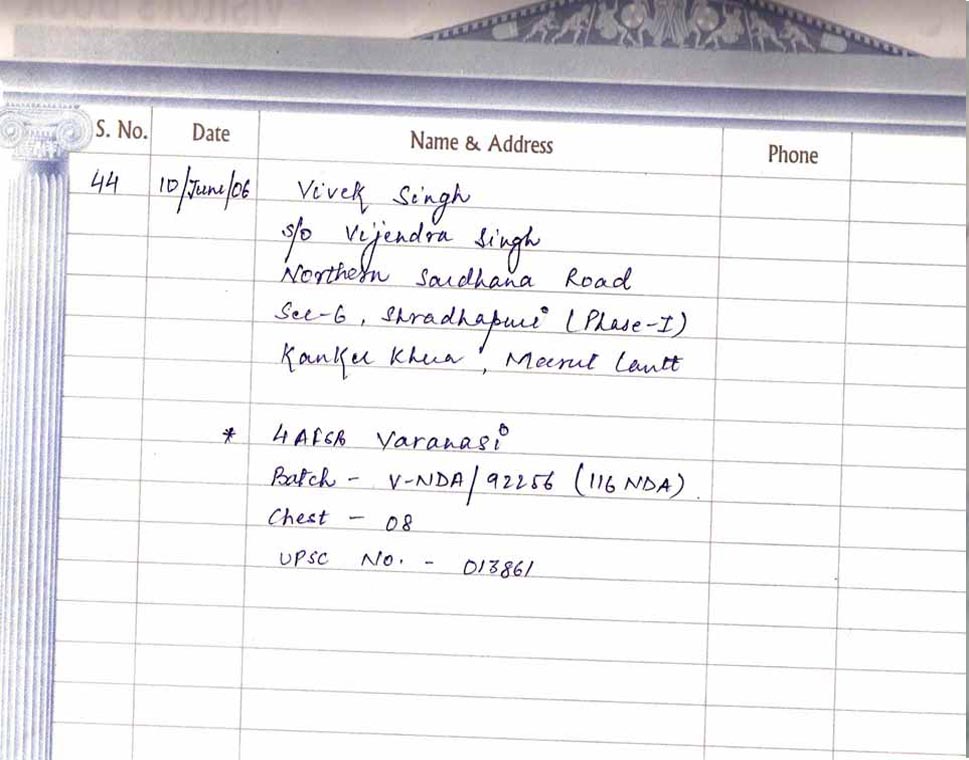 S. No. Date Name & Address Phone
44 10/June/06 Vivek Singh
s/o Vijendra Singh
Northern Saidhana Road
Sec-6, Shradhapuri (Phase-I)
Kanker Khera, Meerut Cantt
* 4 AFSB Varanasi
Batch - V-NDA/92256 (116 NDA).
Chest - 08
UPSC No. - 013861